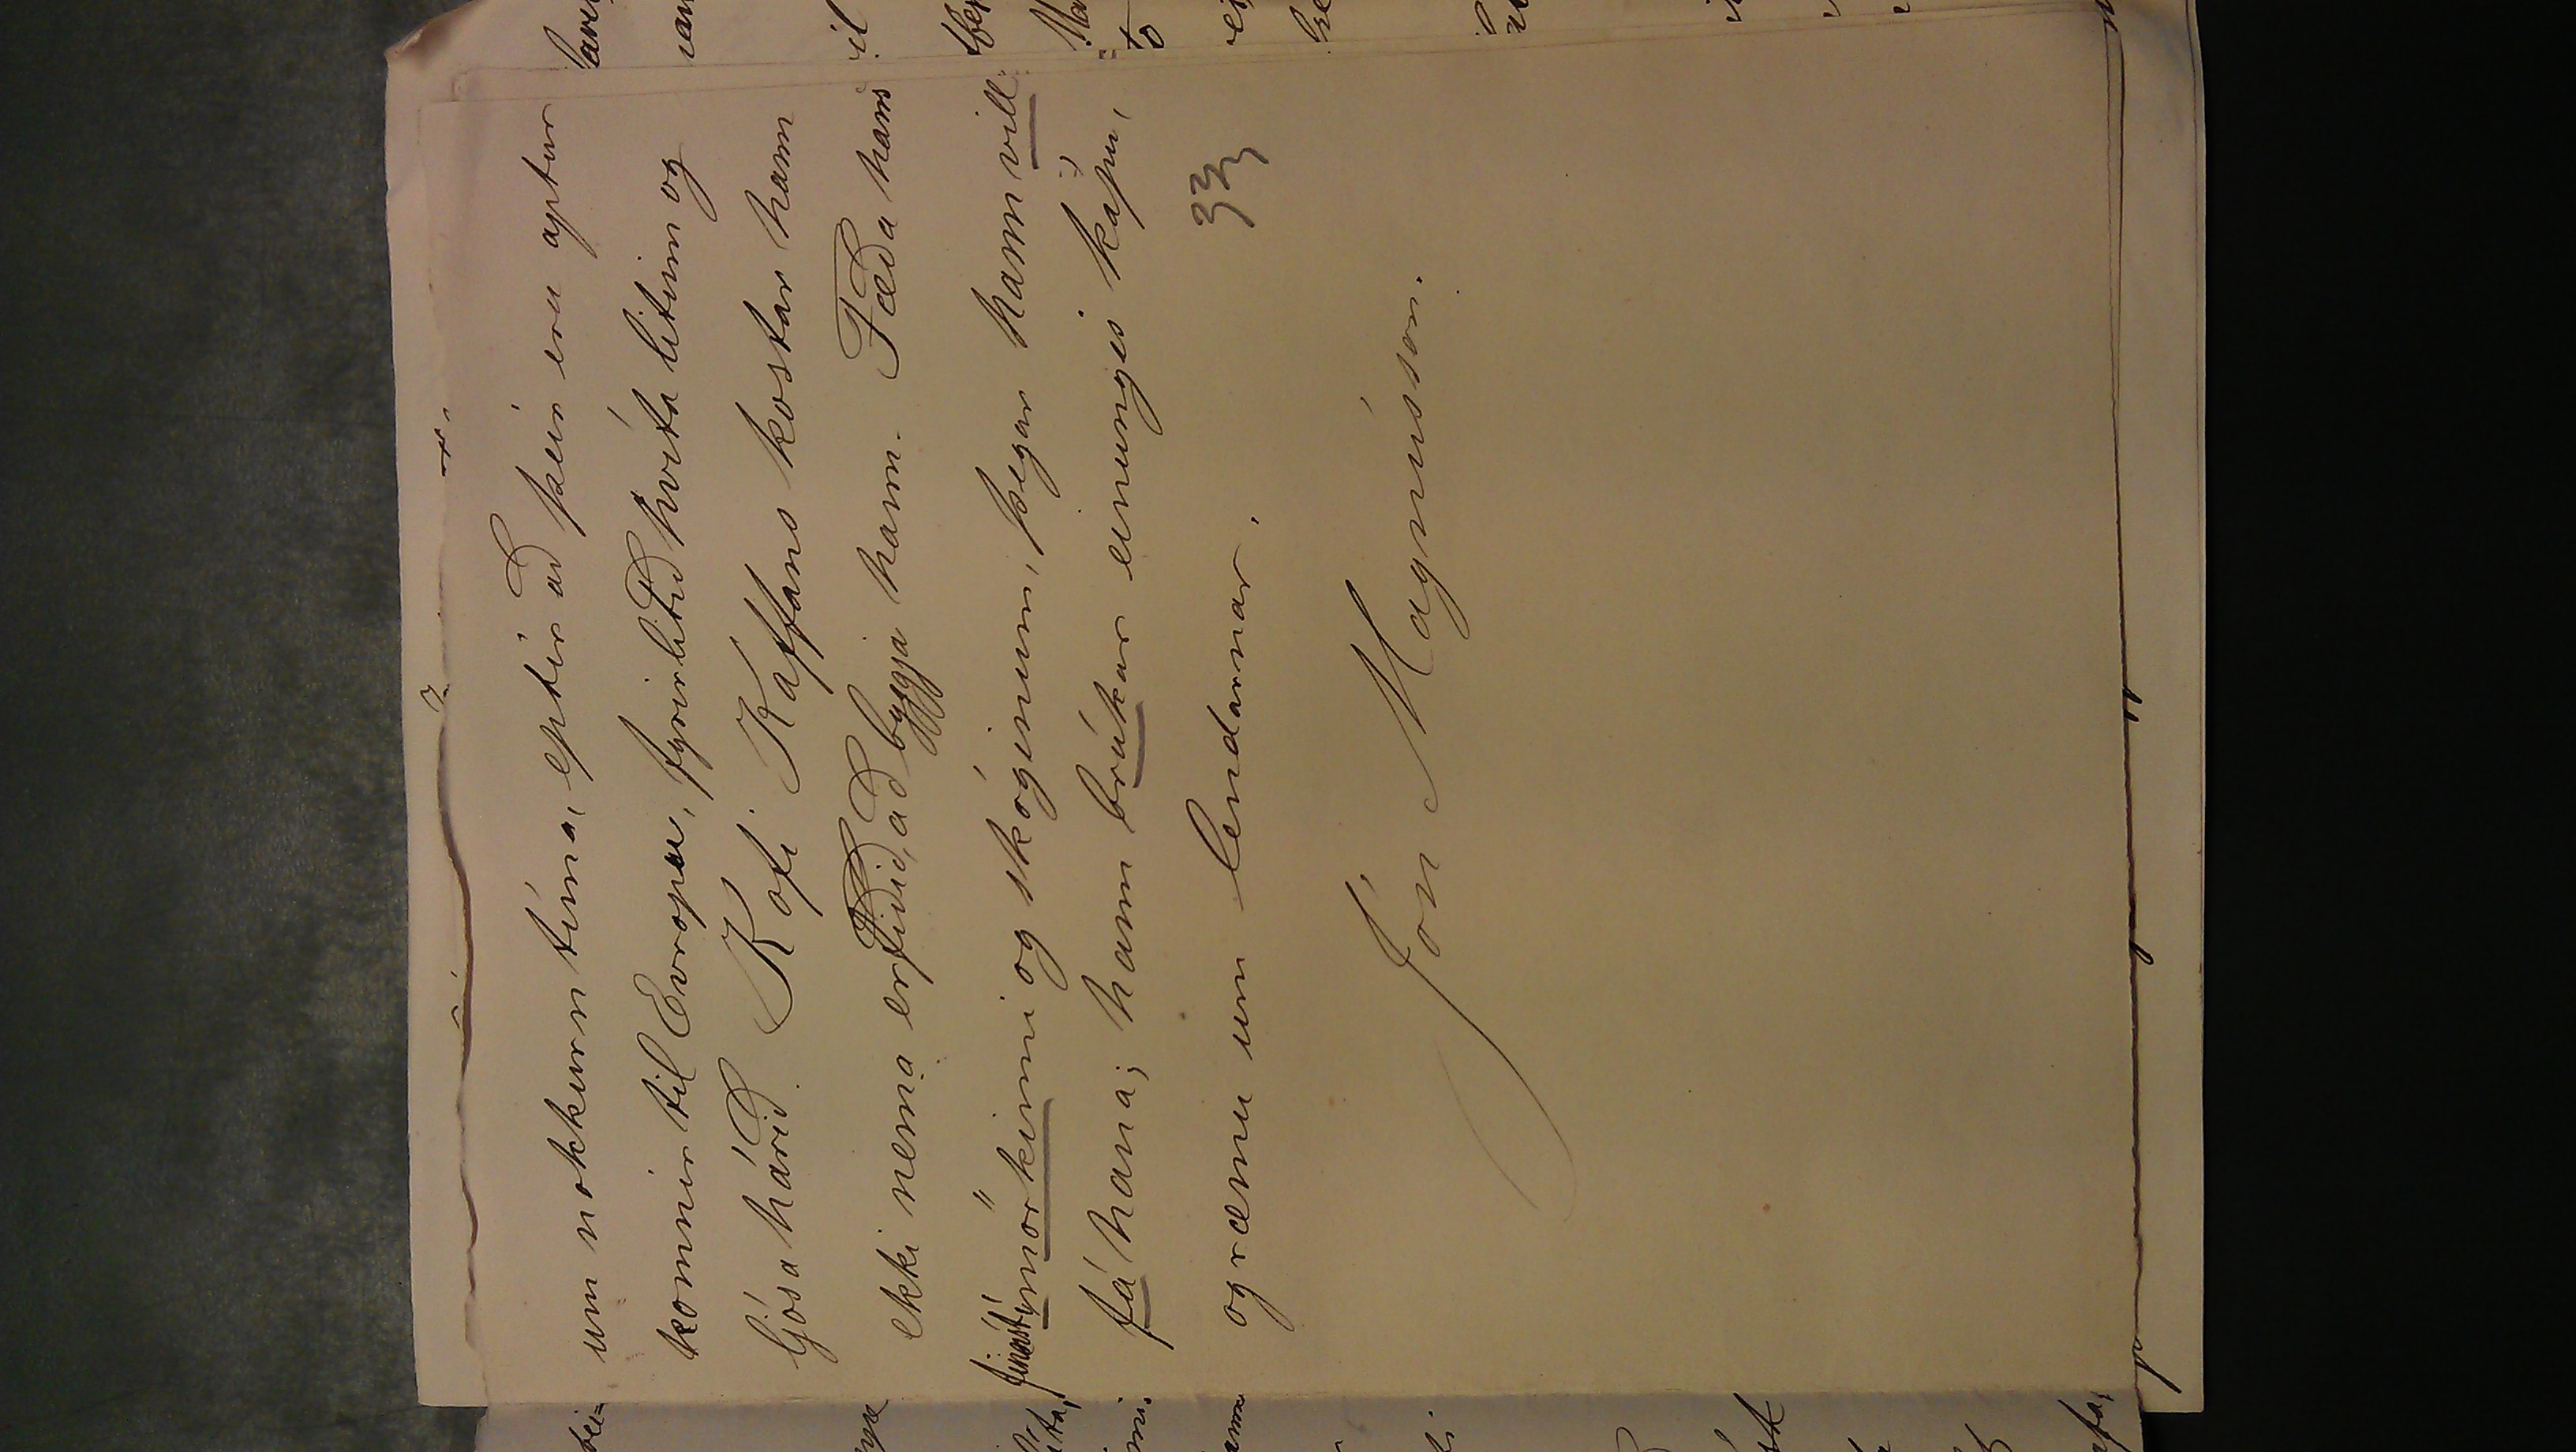 um nokkurn tíma, eptir að þeir eru aptur
komnir til Evropu, fyrirlitið hvíta litinn og
ljósa hárið. Kofi Kaffans kostar hann
ekki nema erfiðið, að byggja hann. Fæða hans
finnst í mörkinni og skóginum, þegar hann vill
fá hana; hann brúkar einungis kápu,
ogrænu um lendarnar.
33
Jón Magnússon.